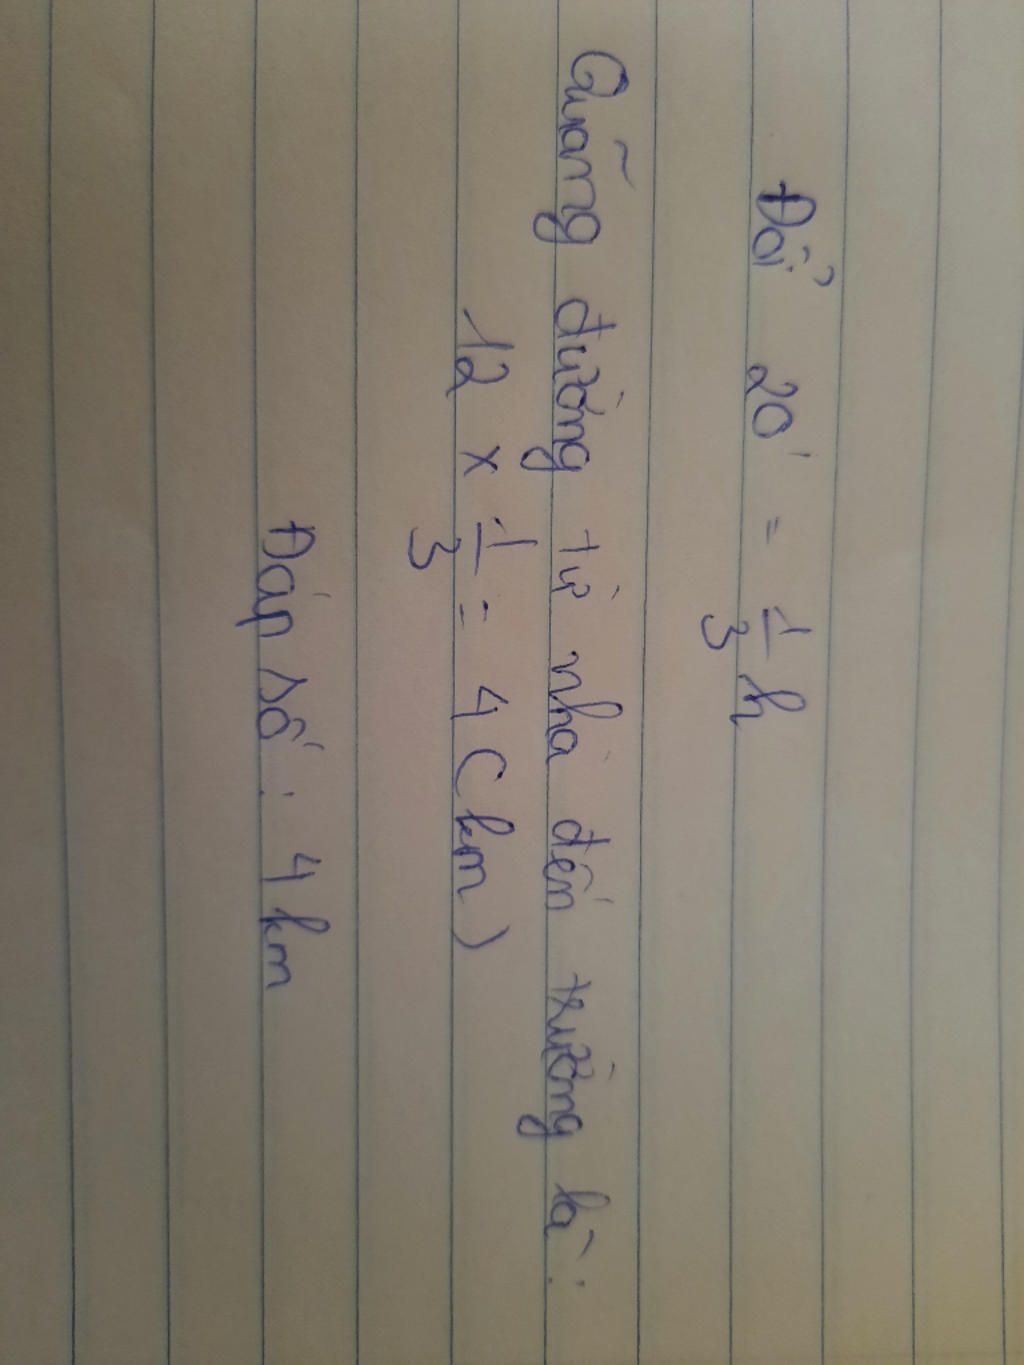 Đổi 20' = 1/3 h
Quãng đường từ nhà đến trường là:
12 x 1/3 = 4 (km)
Đáp số: 4 km